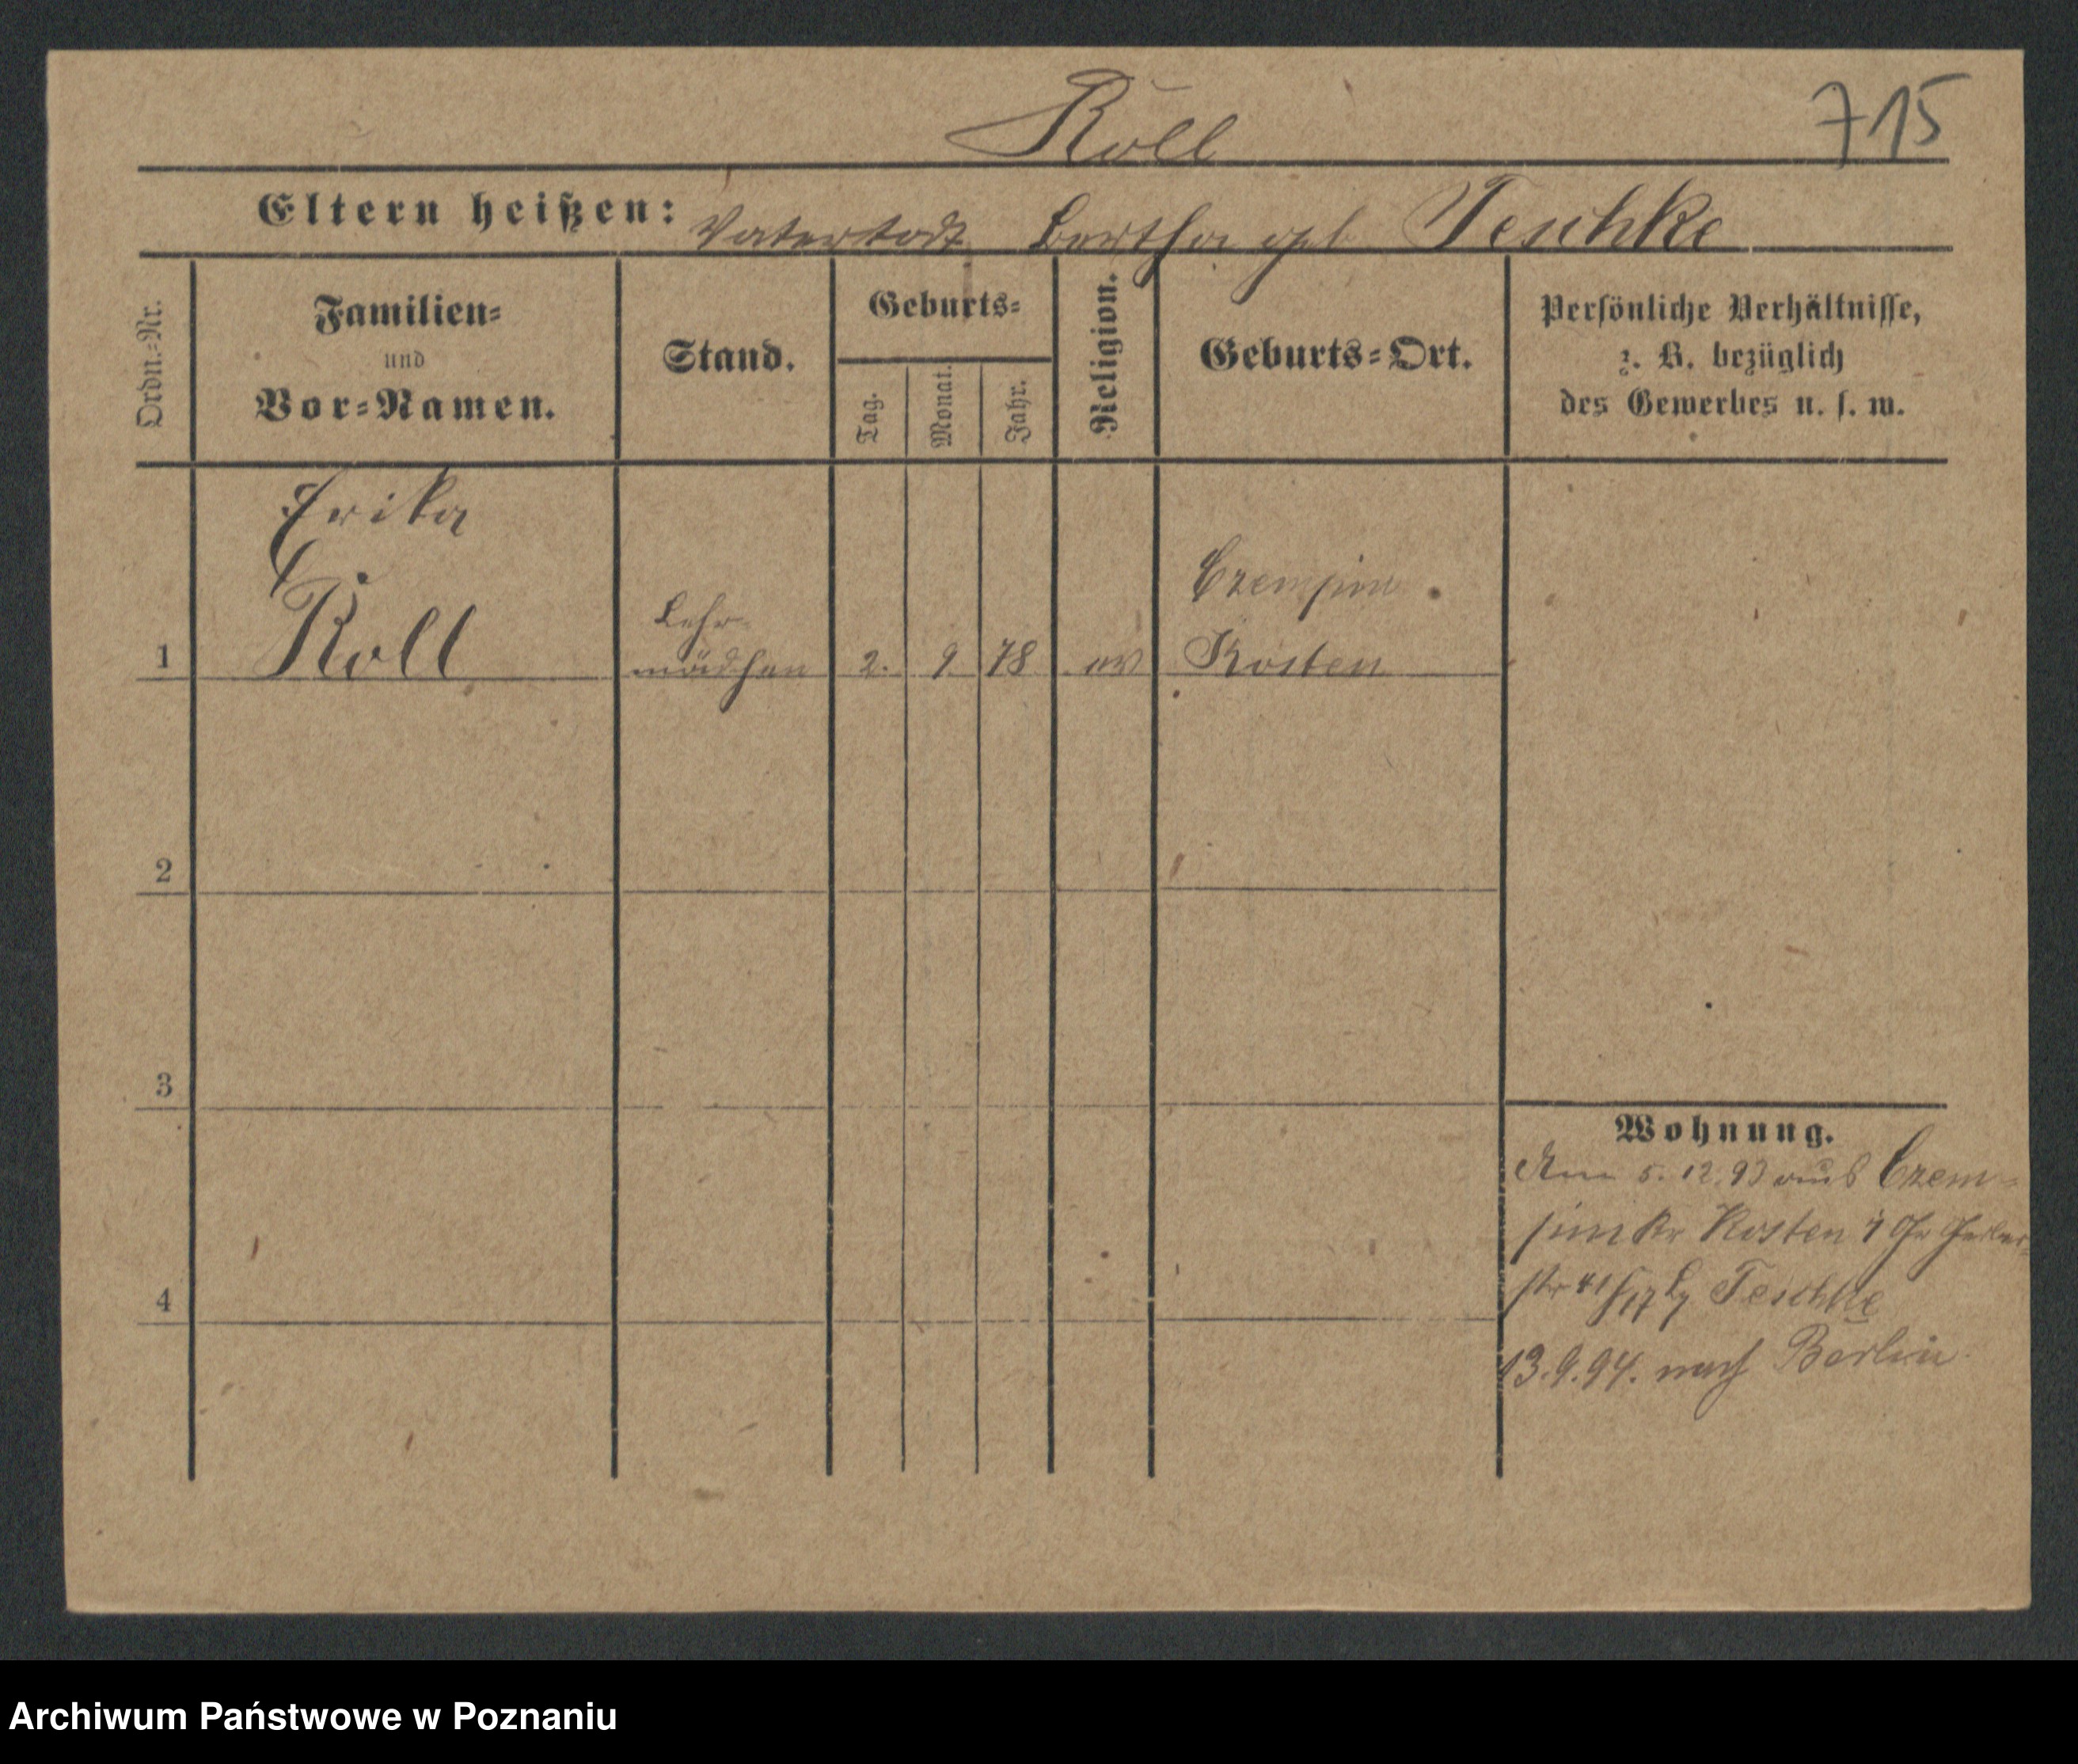 Roll
715
Eltern heißen: Vater todt Bertha geb Teschke
Ordn.-Nr.
Familien-
und
Vor-Namen.
Stand.
Geburts-
Tag.
Monat.
Jahr.
Religion.
Geburts-Ort.
Persönliche Verhältnisse,
z. B. bezüglich
des Gewerbes u. s. w.
Erika
Roll
Lehr-
mädchen
1
2. 9 78 ev
Czempin
Kosten
2
3
4
Wohnung.
Am 5. 12. 93 aus Czem-
pin Kr Kosten Gr Gerber-
str 41/17 Teschke
13.9.94. nach Berlin
Archiwum Państwowe w Poznaniu